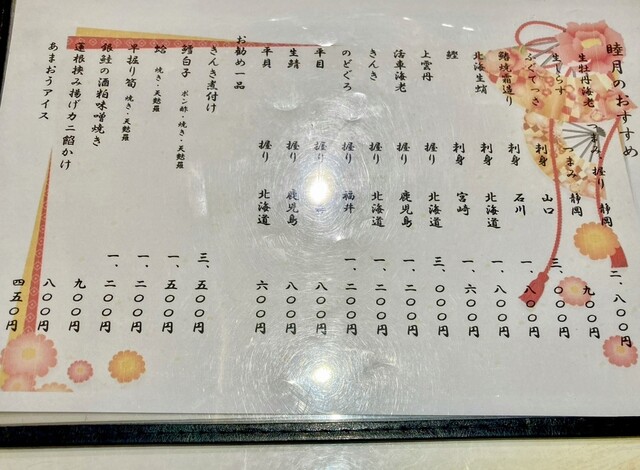 睦月のおすすめ
生牡丹海老 つまみ 握り 静岡 二、八〇〇円
生しらす つまみ 静岡 九〇〇円
ふくてっさ 刺身 山口 三、〇〇〇円
鰆焼霜造り 刺身 石川 一、八〇〇円
北海生蛸 刺身 北海道 一、二〇〇円
鰹 刺身 宮崎 一、六〇〇円
上雲丹 握り 北海道 三、〇〇〇円
活車海老 握り 鹿児島 一、二〇〇円
きんき 握り 北海道 一、二〇〇円
のどぐろ 握り 福井 一、二〇〇円
平目 握り 八〇〇円
生鯖 握り 鹿児島 八〇〇円
平貝 握り 北海道 六〇〇円
お勧め一品
きんき煮付け 三、五〇〇円
鱈白子 ポン酢・焼き・天麩羅 一、五〇〇円
蛤 焼き・天麩羅 一、二〇〇円
早掘り筍 焼き・天麩羅 一、二〇〇円
銀鮭の酒粕味噌焼き 九〇〇円
蓮根挟み揚げカニ餡かけ 八〇〇円
あまおうアイス 四五〇円